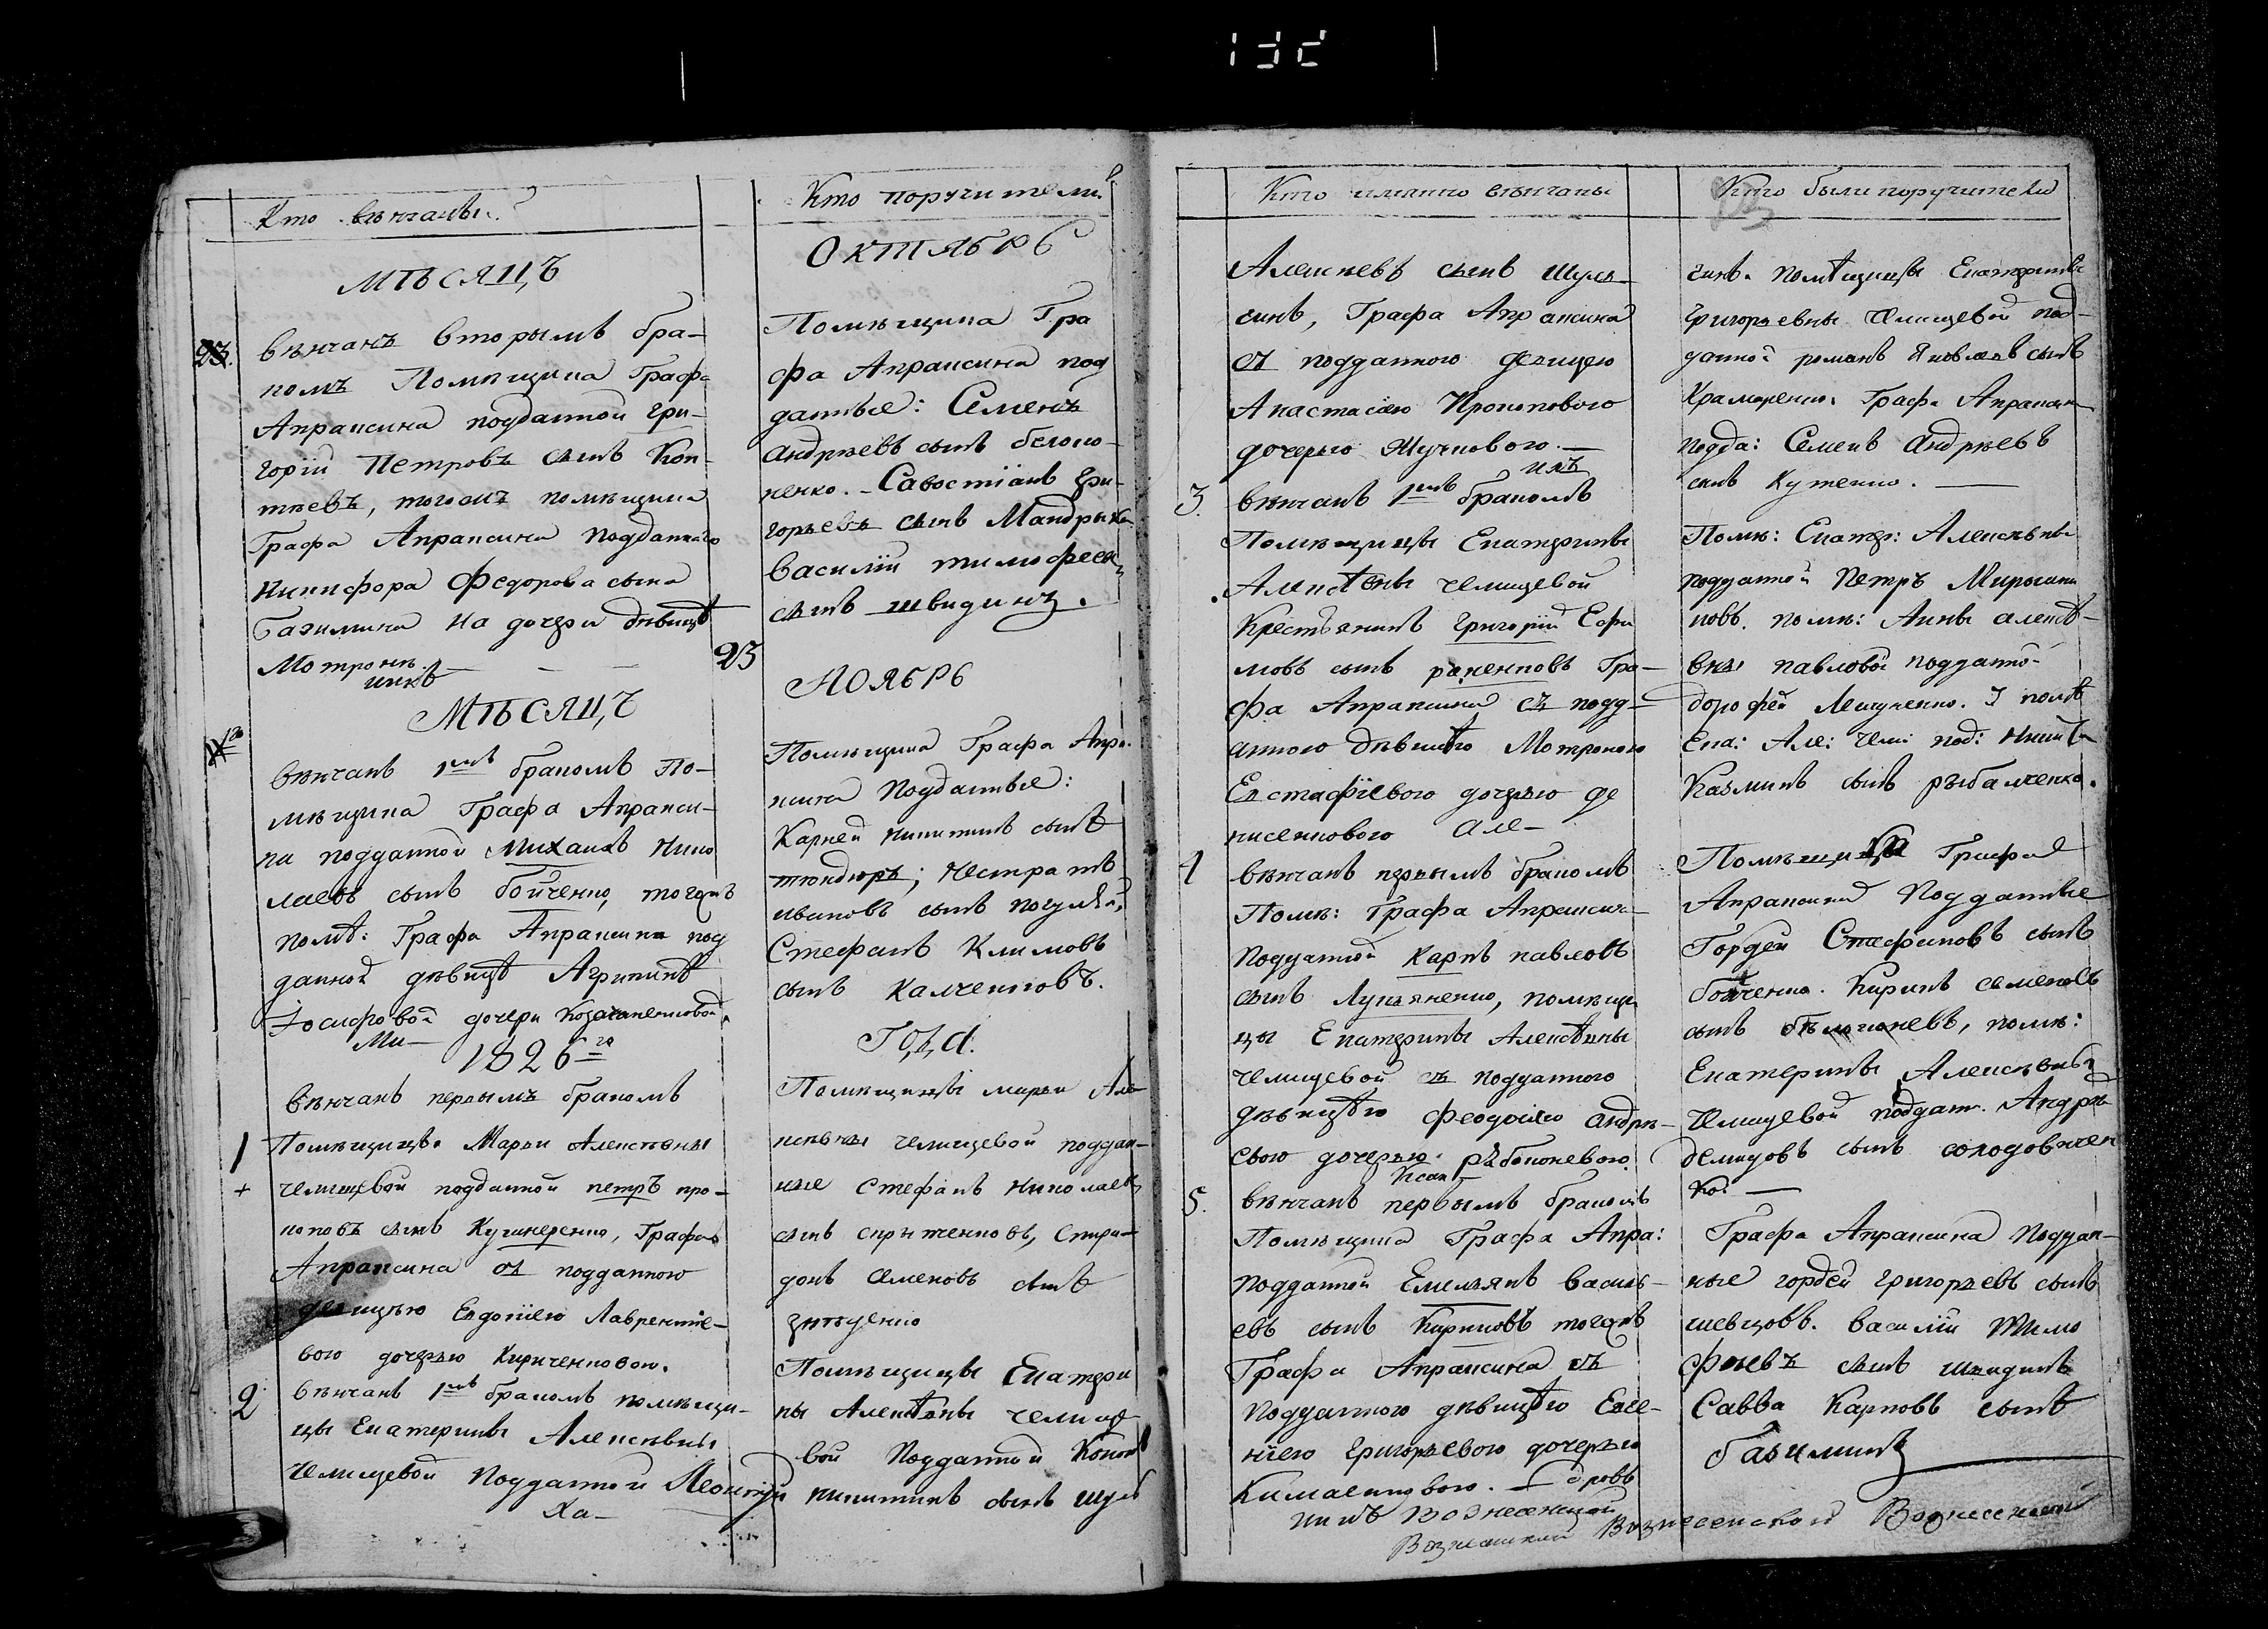 Кто вѣнчаны?
МѢСЯЦЪ
23. вѣнчанъ вторымъ бра-
комъ Помѣщика Графа
Апраксина подданной гри-
горій Петровъ сынъ Коп-
тѣевъ, тогожъ помѣщика
Графа Апраксина подданнаго
Никифора Федорова сына
на дочери дѣвицѣ
Мотронѣ.
МѢСЯЦЪ
вѣнчанъ 1мъ бракомъ По-
мѣщика Графа Апракси-
на подданной Михаилъ Нико
лаевъ сынъ бойченко, тогожъ
помѣ: Графа Апраксина под
данной дѣвицѣ Агрипинѣ
Іосифовой дочери
1826го
вѣнчанъ первымъ бракомъ
1 Помѣщицы Марьи Алексѣевны
+ челищевой подданной петръ про-
коповъ сынъ Кушнеренко, Графа
Апраксина съ подданного
девицею Евдокіею Лаврентіе-
вою дочерью Кириченковою.
2 вѣнчанъ 1мъ бракомъ помѣщи-
цы Екатерины Алексѣвны
Челищевой Подданной Леонтій
Кто поручители?
ОКТЯБРЬ
Помѣщика Гра
фа Апраксина под
данные: Семенъ
андрѣевъ сынъ
Савостіанъ гри-
горьевъ сынъ Мандрыка
василій тимофеевъ
сынъ швидинъ.
23
НОЯБРЬ
Помѣщика Графа Апра-
ксина Подданные:
Карней никитинъ сынъ
тюндюръ;
ивановъ сынъ погуляй,
Стефанъ Климовъ
сынъ Калченковъ.
ГОДА.
Помѣщицы марьи Але
ксѣвны челищевой поддан-
ные Стефанъ Николаевъ
сынъ Спири-
донъ Семеновъ сынъ
Помѣщицы Екатери
ны Алексѣвны челище
вой Подданной Кононъ
никитинъ сынъ шуль
Кто имянно вѣнчаны
Алексѣевъ сынъ Шуль-
гинъ, Графа Апраксина
съ подданного девицею
Анастасіею Прокоповою
дочерью Жучковою.—
3. вѣнчанъ 1мъ бракомъ
Помѣщицы Екатерины
Алексѣвны челищевой
Крестьянинъ григорій Ефи
мовъ сынъ Гра-
фа Апраксина съ подд-
анного дѣвицѣю Мотроною
Евстафіевою дочерью де
нисенковою Але-
4 вѣнчанъ первымъ бракомъ
Помѣ: Графа Апраксина
Подданной Карпъ павловъ
сынъ Лукьяненко, помѣщи
цы Екатерины Алексѣвны
челищевой съ подданного
дѣвицѣю Феодосіею андрѣ-
евою дочерью рѣбоконевою.
5. вѣнчанъ первымъ бракомъ
Помѣщика Графа Апра:
подданной Емельянъ василь-
евъ сынъ Кириковъ тогожъ
Графа Апраксина съ
подданного дѣвицѣю Евге-
ніею Григорьевою дочерью
Вознесенской
Вознесенской Вознесенской
Кто были поручители
гинъ. помѣщицы Екатерины
григорьевны Челищевой под-
данной романъ Яковлевъ сынъ
Крамаренко. Графа Апраксина
подда: Семенъ андрѣевъ
сынъ Кутенко. —
Помѣ: Екатер: Алексѣвны
подданной Петръ
новъ. помѣ: Анны алексѣ-
вны павловой подданно-
дорофей
Ека: Але: Чели: под:
Казминъ сынъ рыбалченко.
Графа
Апраксина Подданные
Гордей Стефановъ сынъ
бойченко. Кирикъ семеновъ
сынъ помѣ:
Екатерины Алексѣвны
Челищевой поддан. Андрѣ
демидовъ сынъ солодовничен
ко. —
Графа Апраксина Поддан-
ные гордѣй григорьевъ сынъ
шевцовъ. василій Тимо
фѣевъ сынъ швидинъ
Савва Карповъ сынъ
Вознесенской